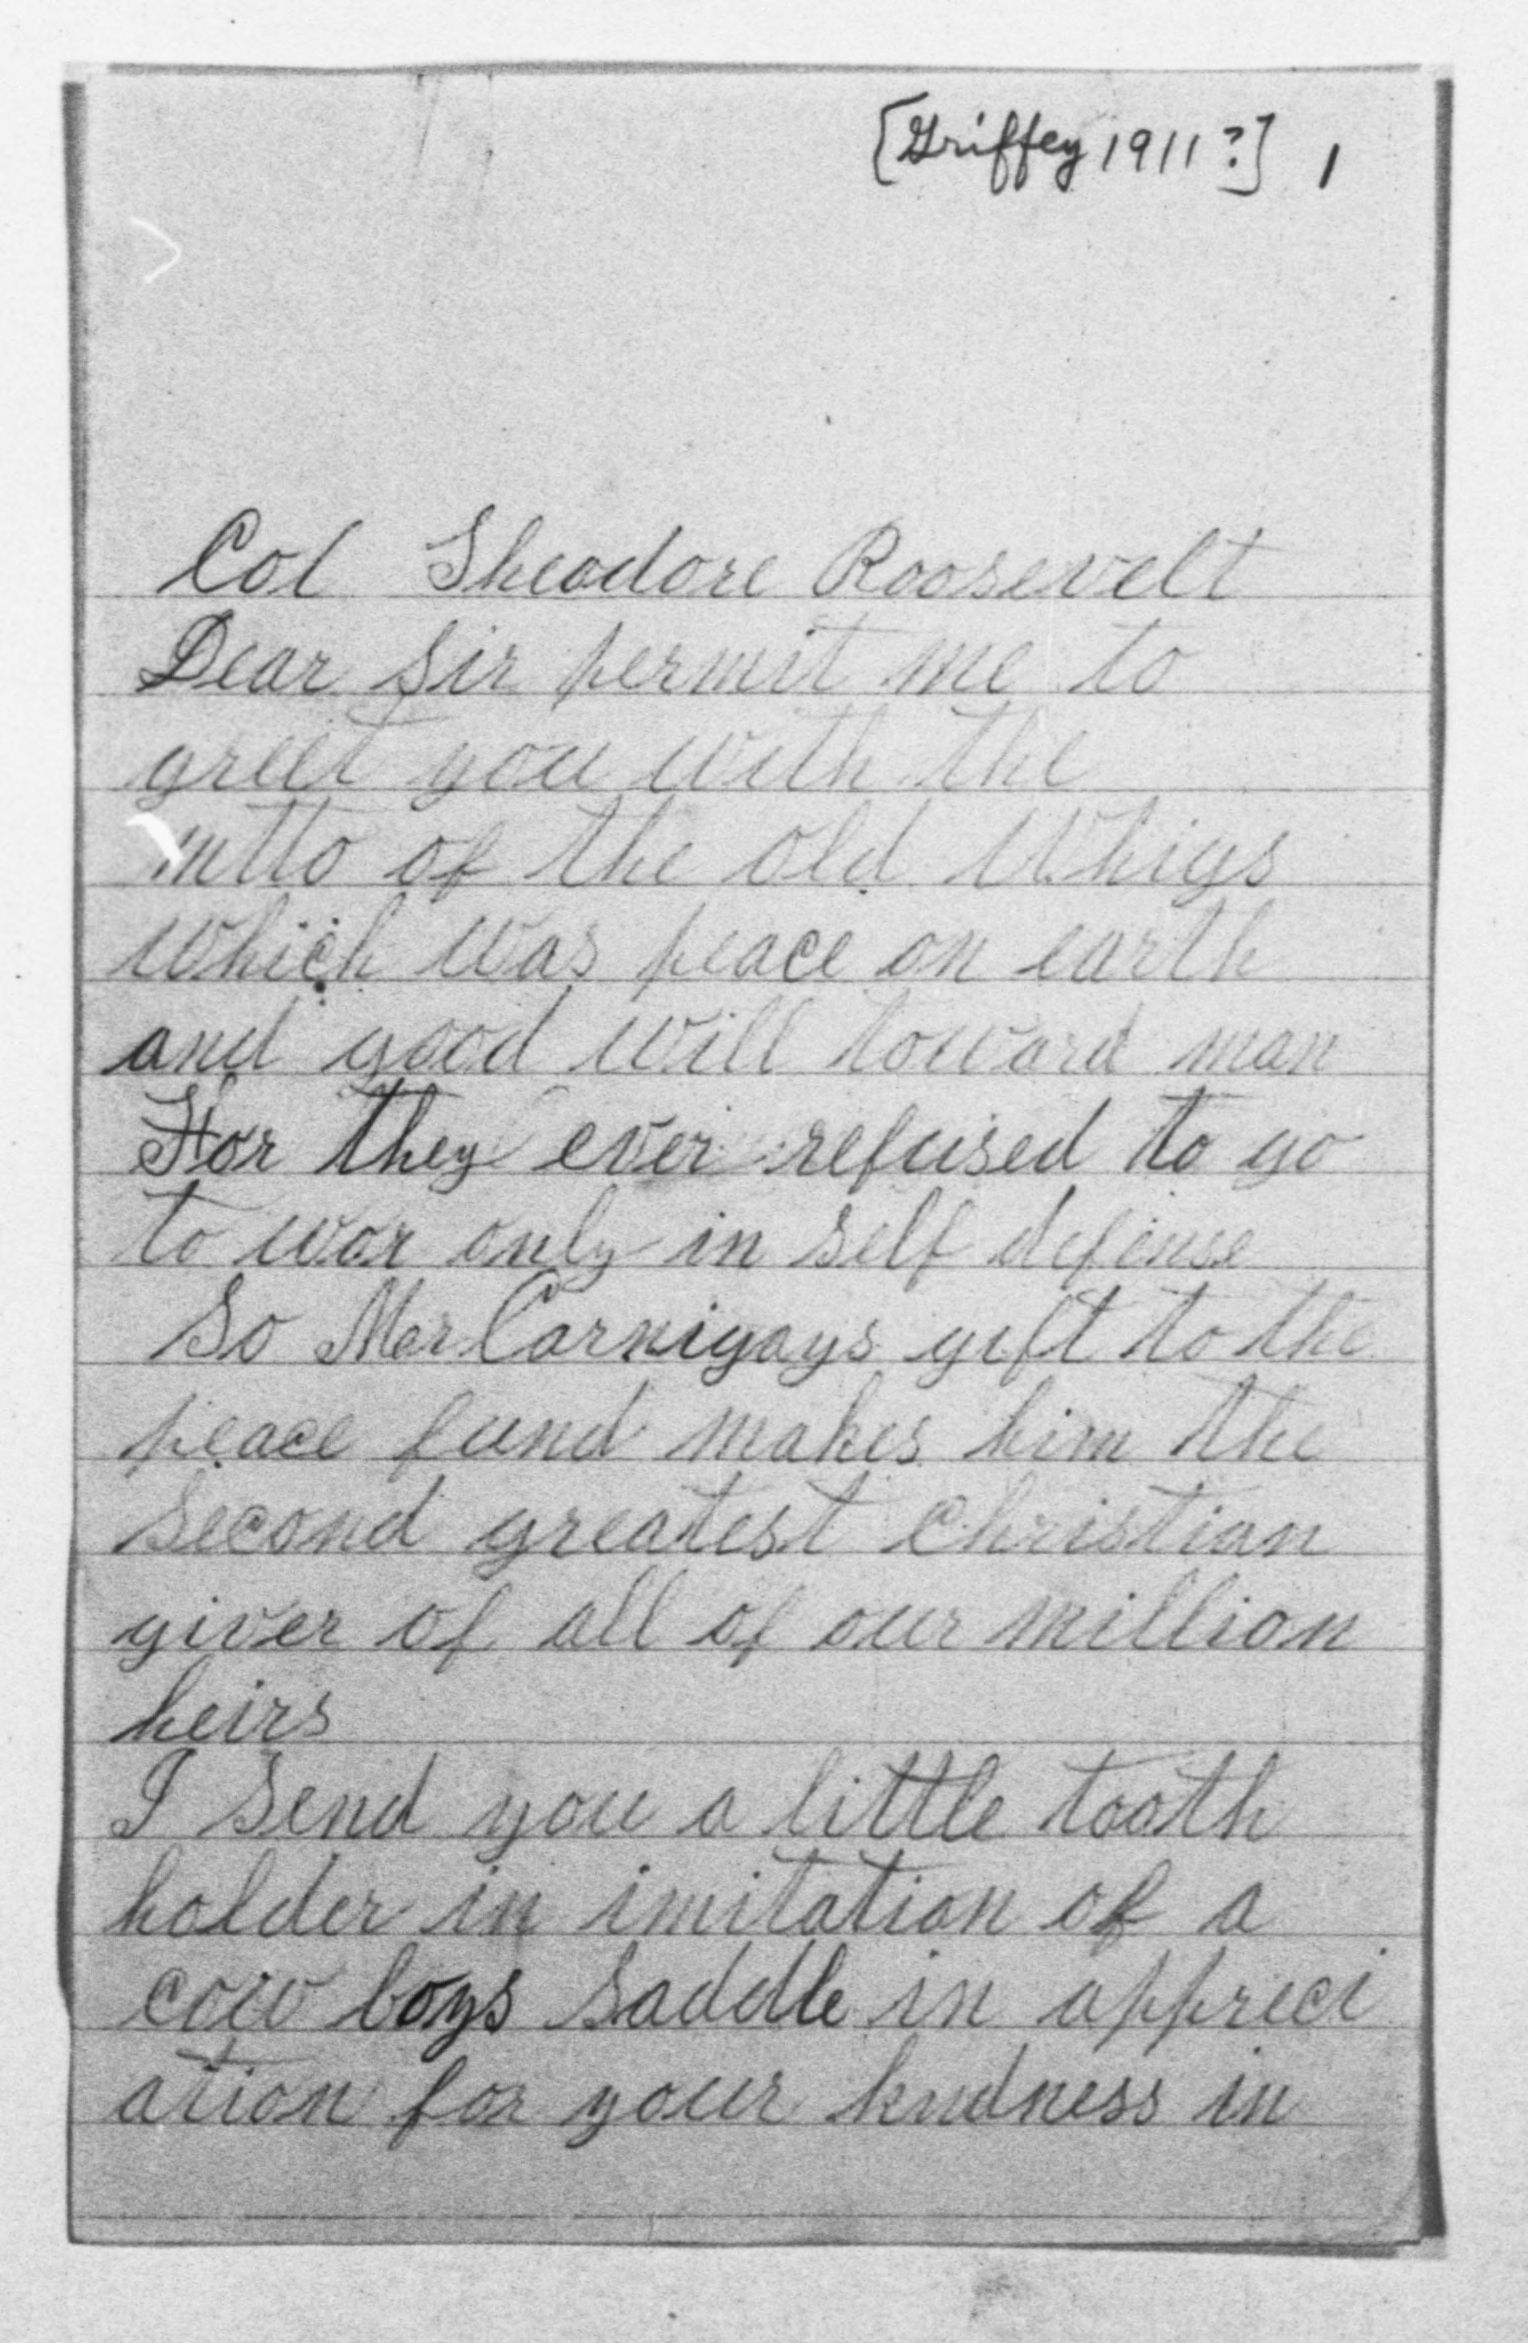 [Griffey 1911?] 1
Col Theodore Roosevelt
Dear Sir permit me to
greet you with the
mtto of the old Whigs
which was peace on earth
and good will toward man
For they ever refused to go
to war only in self defense
So Mer Carnigays gift to the
peace fund makes him the
second greatest christian
giver of all of our million
heirs
I send you a little tooth
holder in imitation of a
cow boys saddle in appreci
ation for your kndness in